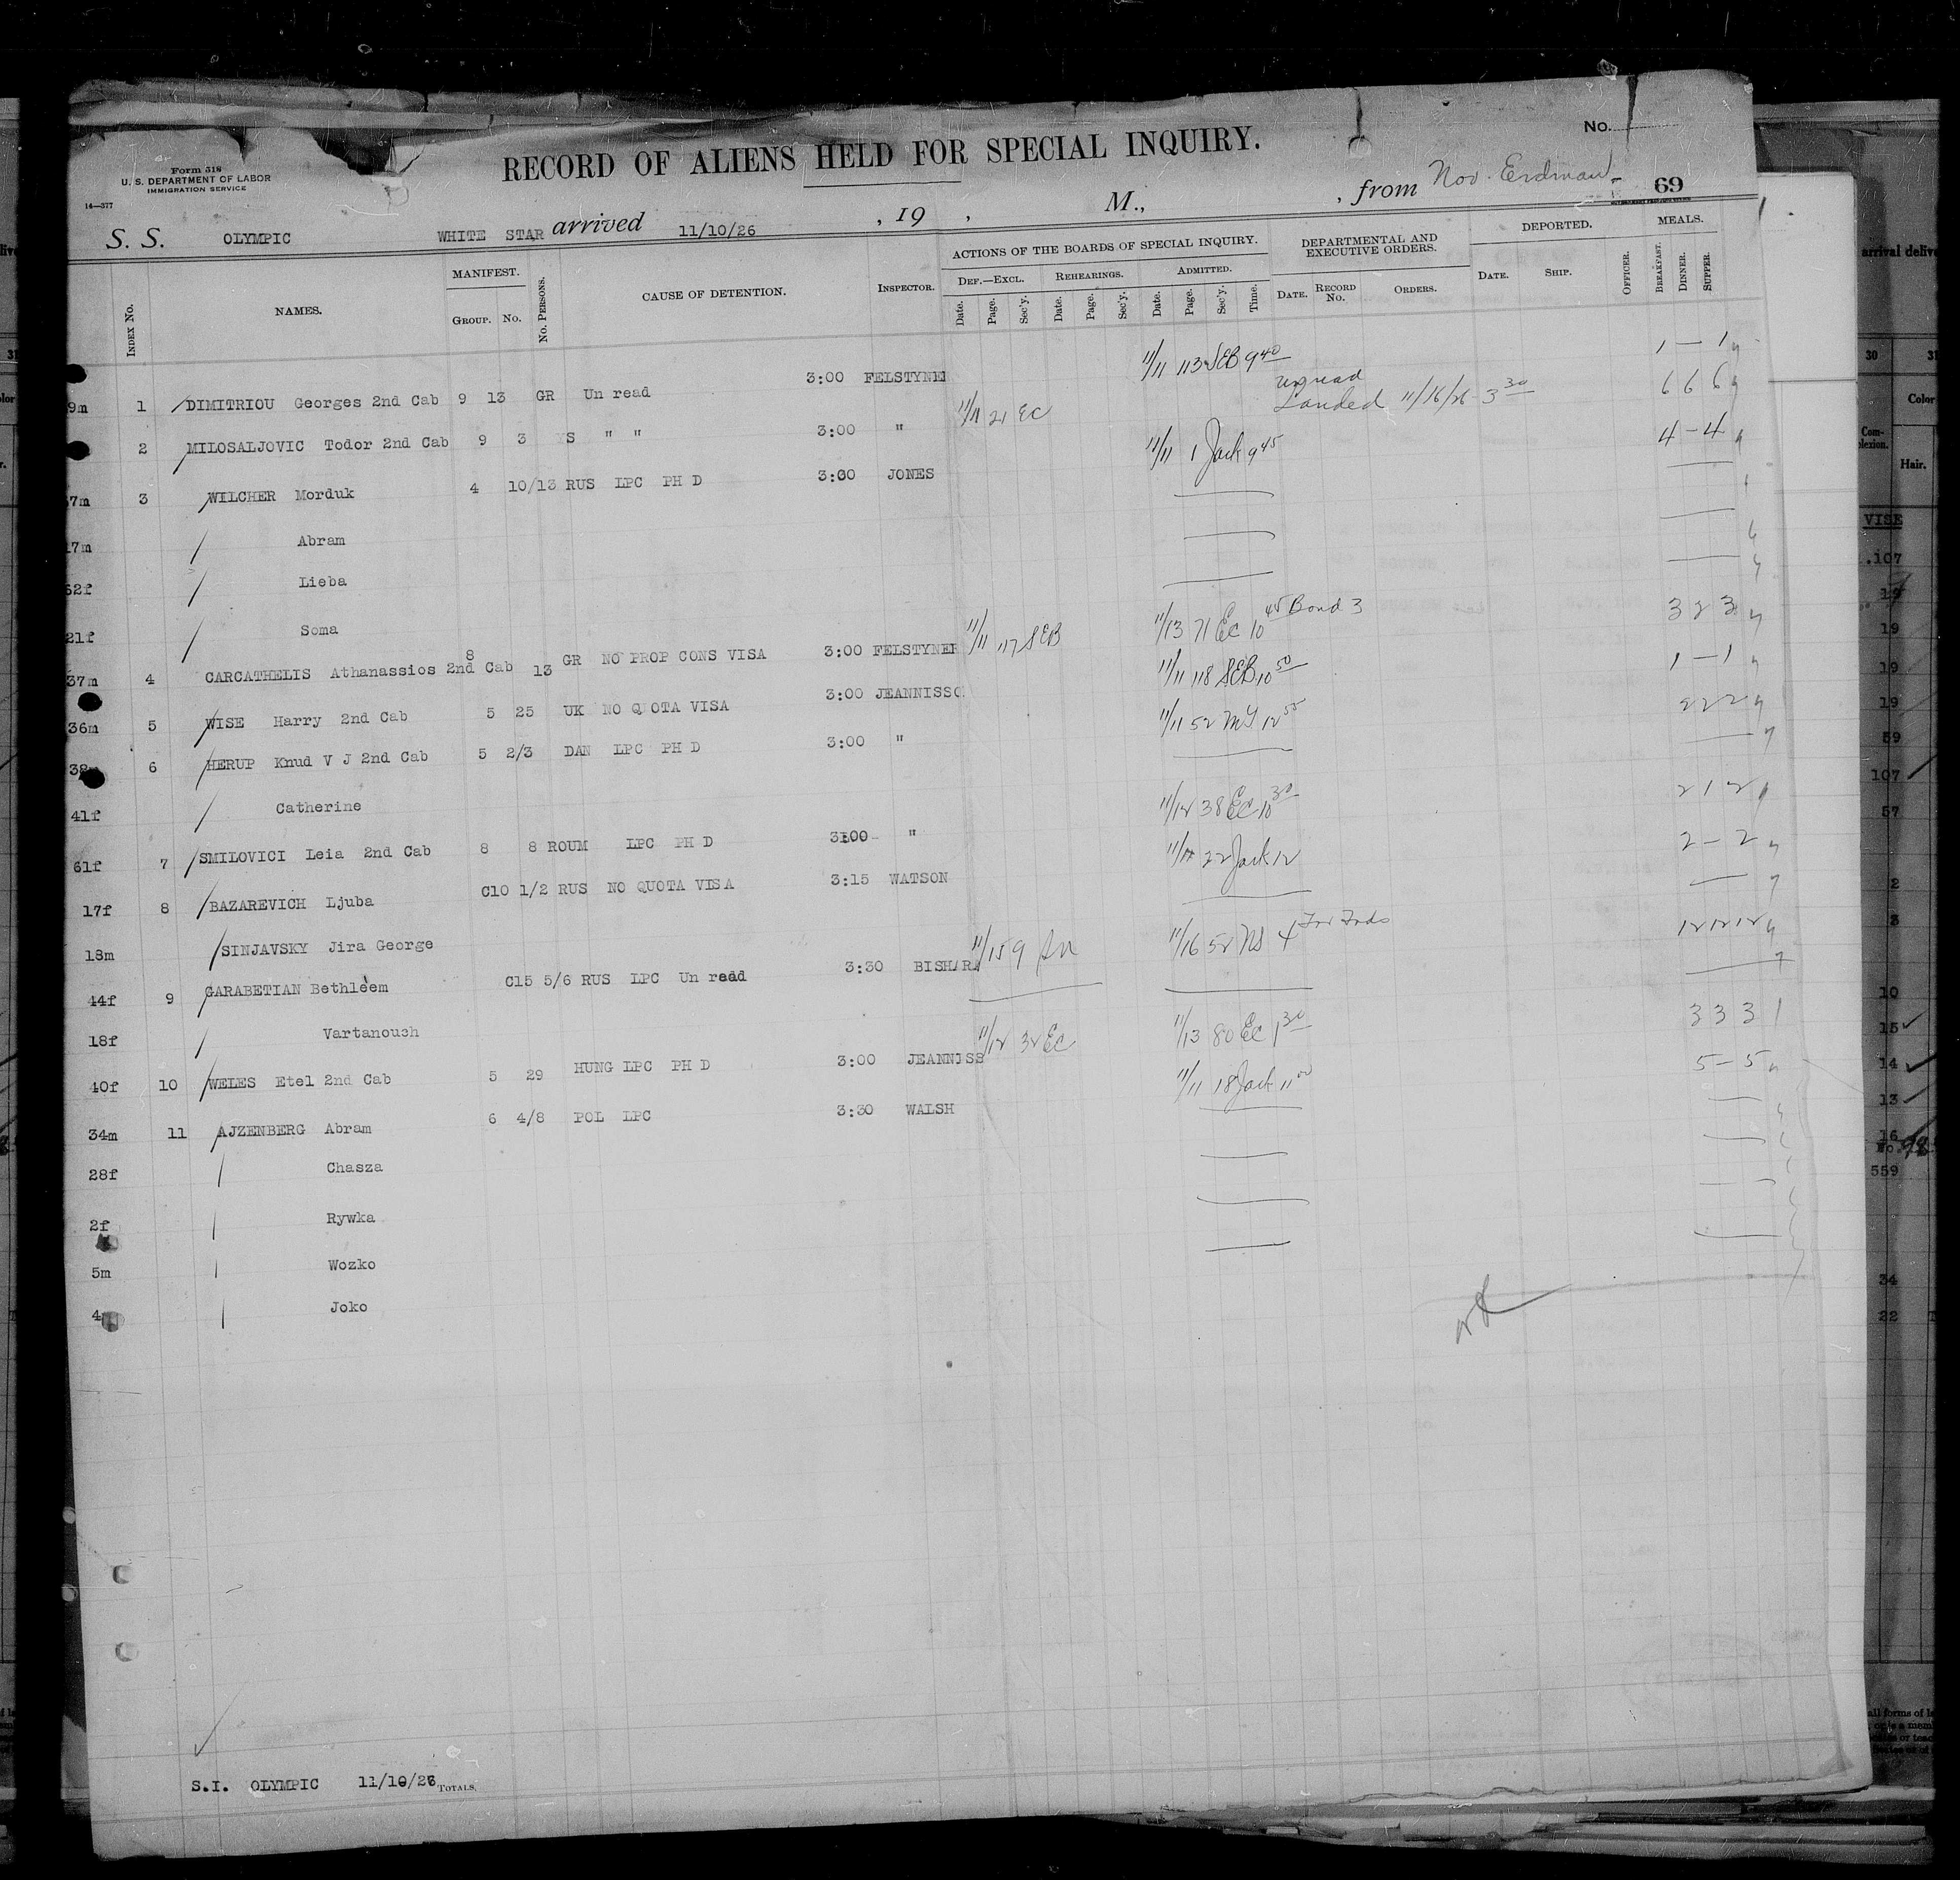 Form 518
U. S. DEPARTMENT OF LABOR
IMMIGRATION SERVICE
14—377
RECORD OF ALIENS HELD FOR SPECIAL INQUIRY.
No.
S. S. OLYMPIC WHITE STAR arrived 11/10/26 , 19 , M., , from Nov. Erdman 69
INDEX No. NAMES. MANIFEST. GROUP. No. No. PERSONS. CAUSE OF DETENTION. INSPECTOR.
ACTIONS OF THE BOARDS OF SPECIAL INQUIRY. DEF.—EXCL. Date. Page. Sec'y. REHEARINGS. Date. Page. Sec'y. ADMITTED. Date. Page. Sec'y. Time.
DEPARTMENTAL AND EXECUTIVE ORDERS. DATE. RECORD No. ORDERS.
DEPORTED. DATE. SHIP. OFFICER. MEALS. BREAKFAST. DINNER. SUPPER.
9m 1 DIMITRIOU Georges 2nd Cab 9 13 GR Un read 3:00 FELSTYNE 11/11 113 SEB 9 40 1 — 1
2 MILOSALJOVIC Todor 2nd Cab 9 3 S " " 3:00 " 11/11 21 EC Landed 11/16/26 - 3 30 6 6 6
37m 3 WILCHER Morduk 4 10/13 RUS LPC PH D 3:00 JONES 11/11 1 Jack 9 45 4 — 4
17m Abram
62f Lieba
21f Soma
37m 4 CARCATHELIS Athanassios 2nd Cab 8 13 GR NO PROP CONS VISA 3:00 FELSTYNER 11/11 117 SEB 11/13 71 EC 10 45 Bond 3 3 2 3
36m 5 WISE Harry 2nd Cab 5 25 UK NO QUOTA VISA 3:00 JEANNISSO 11/11 118 SEB 10 50 1 — 1
38m 6 HERUP Knud V J 2nd Cab 5 2/3 DAN LPC PH D 3:00 " 11/11 52 12 55 2 2 2
41f Catherine
61f 7 SMILOVICI Leia 2nd Cab 8 8 ROUM LPC PH D 3:00 " 11/12 38 EC 10 30 2 1 2
17f 8 BAZAREVICH Ljuba C10 1/2 RUS NO QUOTA VISA 3:15 WATSON 22 Jack 12 2 — 2
18m SINJAVSKY Jira George
44f 9 GARABETIAN Bethleem C15 5/6 RUS LPC Un read 3:30 BISHARA 11/15 9 11/16 52 NS 4 12 12 12
18f Vartanoush
40f 10 WELES Etel 2nd Cab 5 29 HUNG LPC PH D 3:00 JEANNISS 11/12 32 EC 11/13 80 EC 1 30 3 3 3
34m 11 AJZENBERG Abram 6 4/8 POL LPC 3:30 WALSH 11/11 18 Jack 11 00 5 — 5
28f Chasza
2f Rywka
5m Wozko
4 Joko
S.I. OLYMPIC 11/10/26 TOTALS,